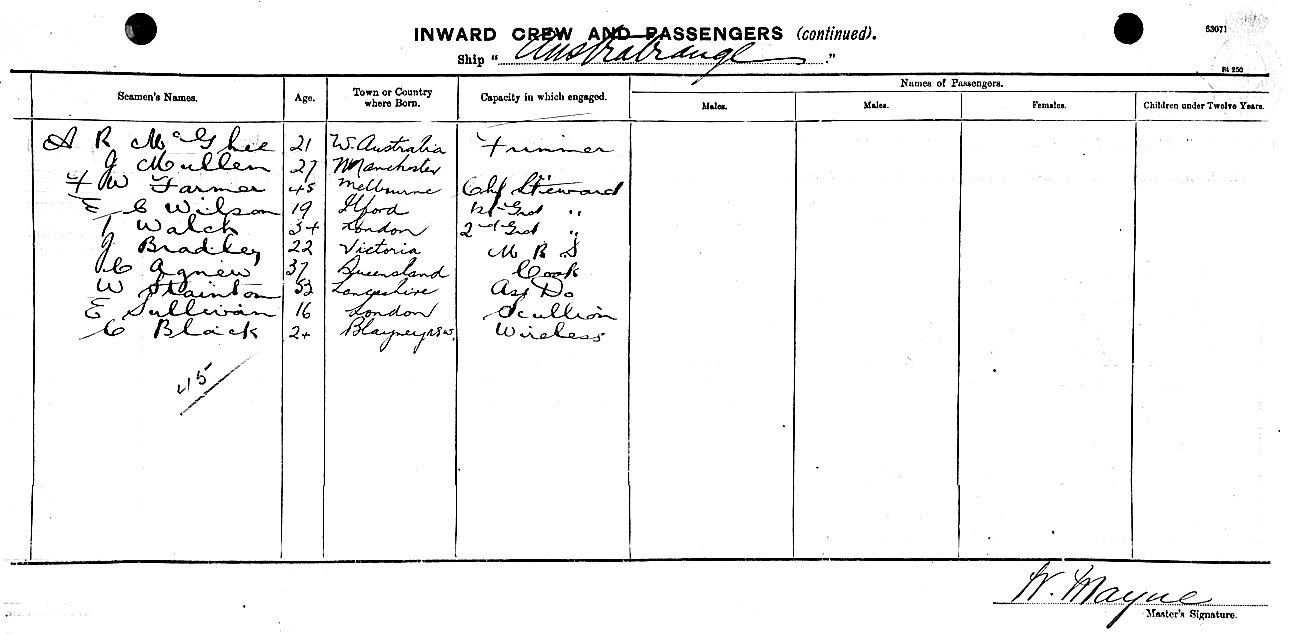 INWARD CREW AND PASSENGERS (continued).
63071
Ship "Australrange"
84 250
Seamen's Names. Age. Town or Country where Born. Capacity in which engaged. Names of Passengers.
Males. Males. Females. Children under Twelve Years.
A R McGhee 21 W. Australia Trimmer
J Mullen 27 Manchester
F W Farmer 45 Melbourne Chf Steward
E C Wilson 19 Ilford 1st Grd "
T Walch 34 London 2nd Grd "
J Bradley 22 Victoria M R S
C Agnew 37 Queensland Cook
W Stainton 53 Lancashire Ass Do
E Sullivan 16 London Scullion
C Black 24 Blayney NSW. Wireless
45
W. Mayne
Master's Signature.